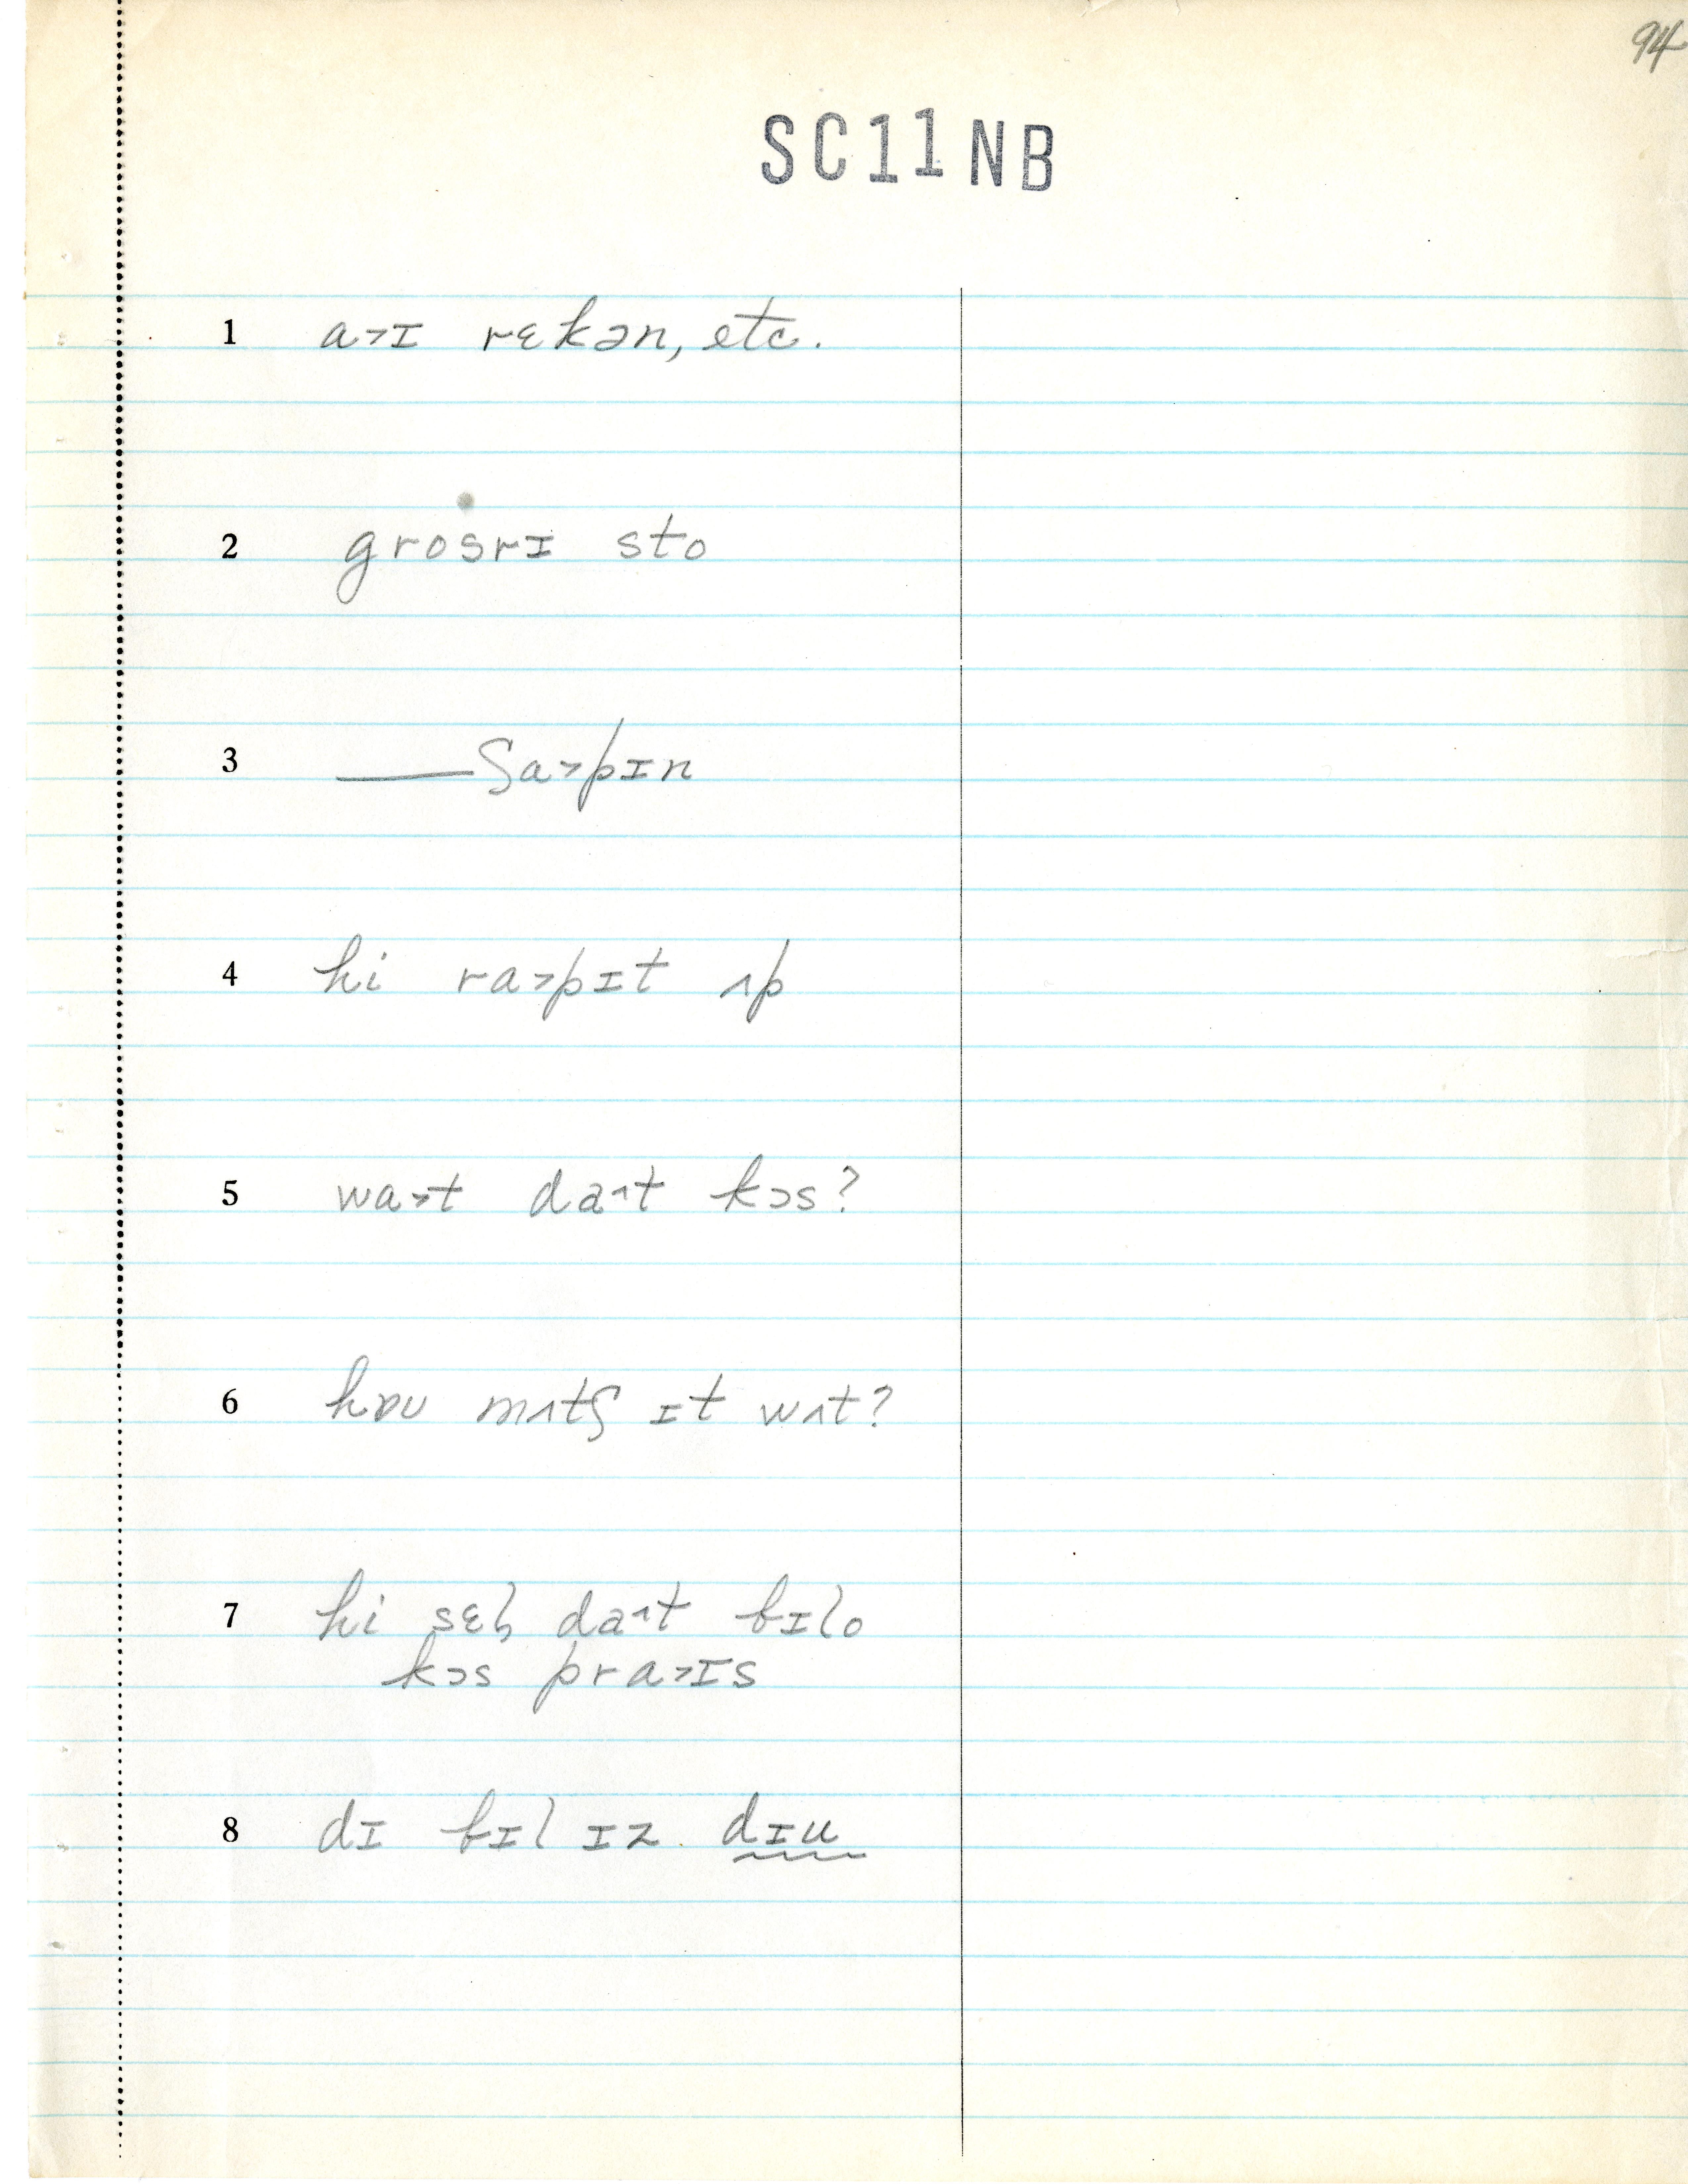 94
SC11NB
1 a˃ɪ rɛkən, etc.
2 grosrɪ sto
3 ——ʃa˃pɪn
4 hi ra˃pɪt ʌp
5 wa˃t da˄t kɔs?
6 hɒʊ mʌtʃ ɪt wʌt?
7 hi sɛl̩ da˄t bɪlo
kɔs pra˃ɪs
8 dɪ bɪl ɪz dɪu